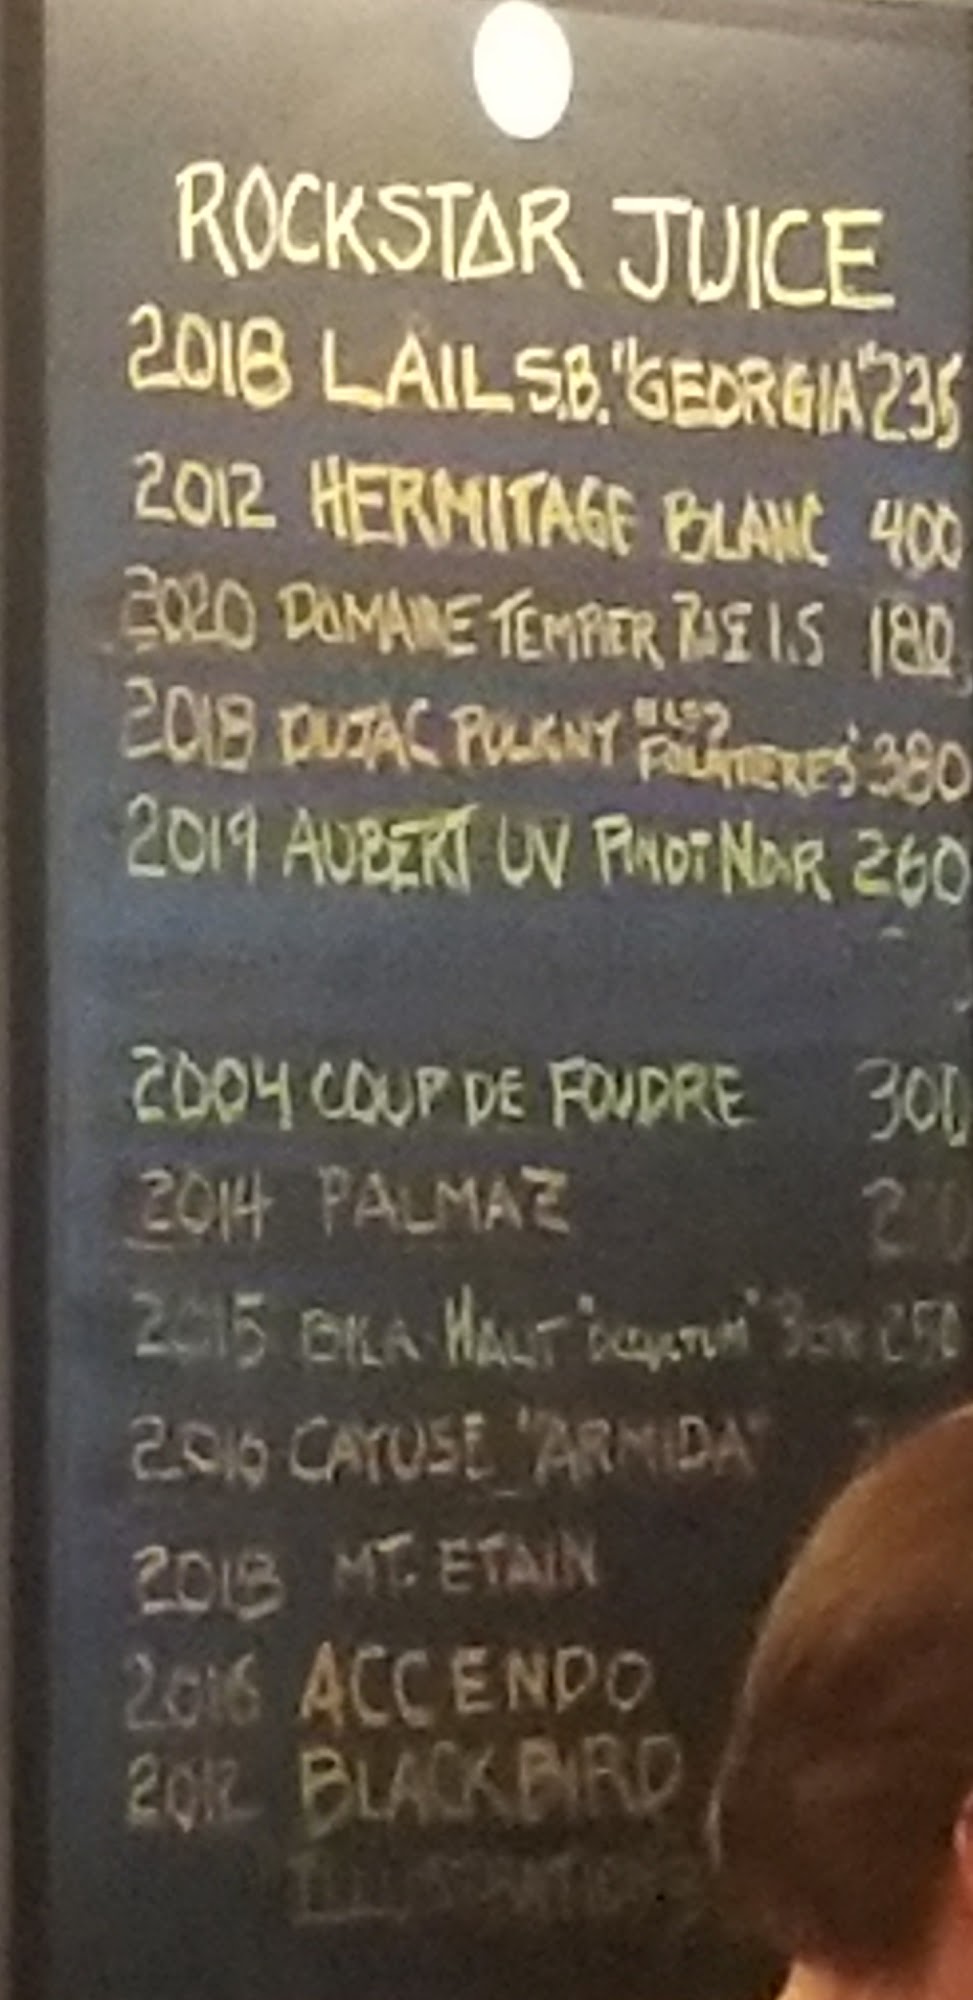 ROCKSTAR JUICE
2018 LAIL S.B. "GEORGIA" 235
2012 HERMITAGE BLANC 400
2020 DOMAINE TEMPIER 1.5 180
2018 DUJAC PULIGNY "LES FOLATIERES" 380
2019 AUBERT UV PINOT NOIR 260
2004 COUP DE FOUDRE 300
2014 PALMAZ
2015 BILA HAUT 250
2016 CAYUSE "ARMIDA"
2018 MT. ETAIN
2016 ACCENDO
2012 BLACKBIRD